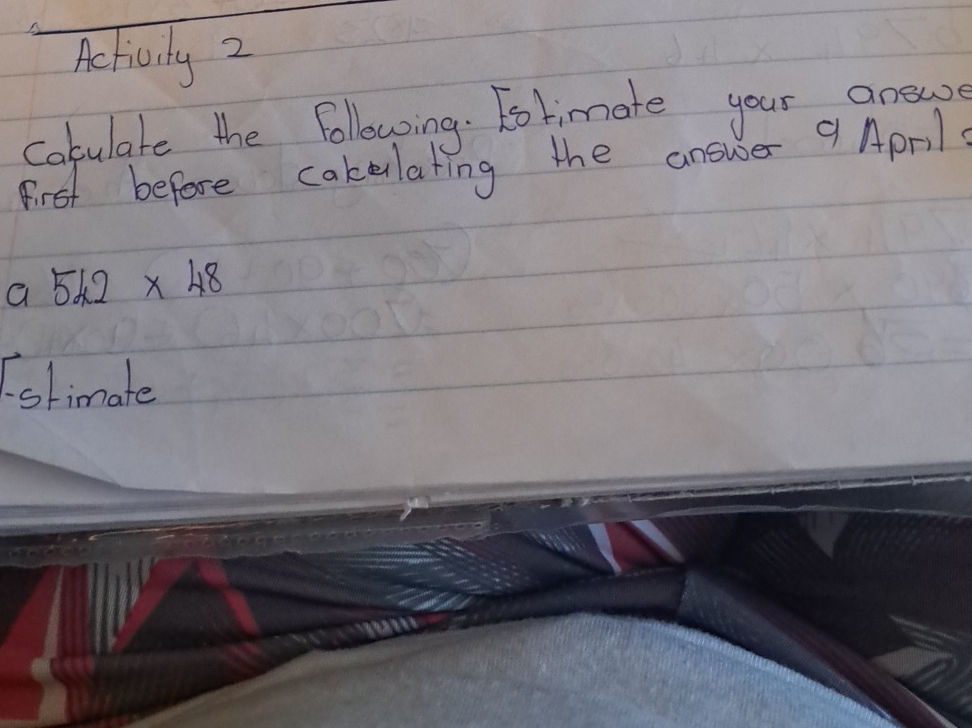 Activity 2
Calculate the following. Estimate your answe
first before calculating the answer 9 April
a 542 x 48
Estimate